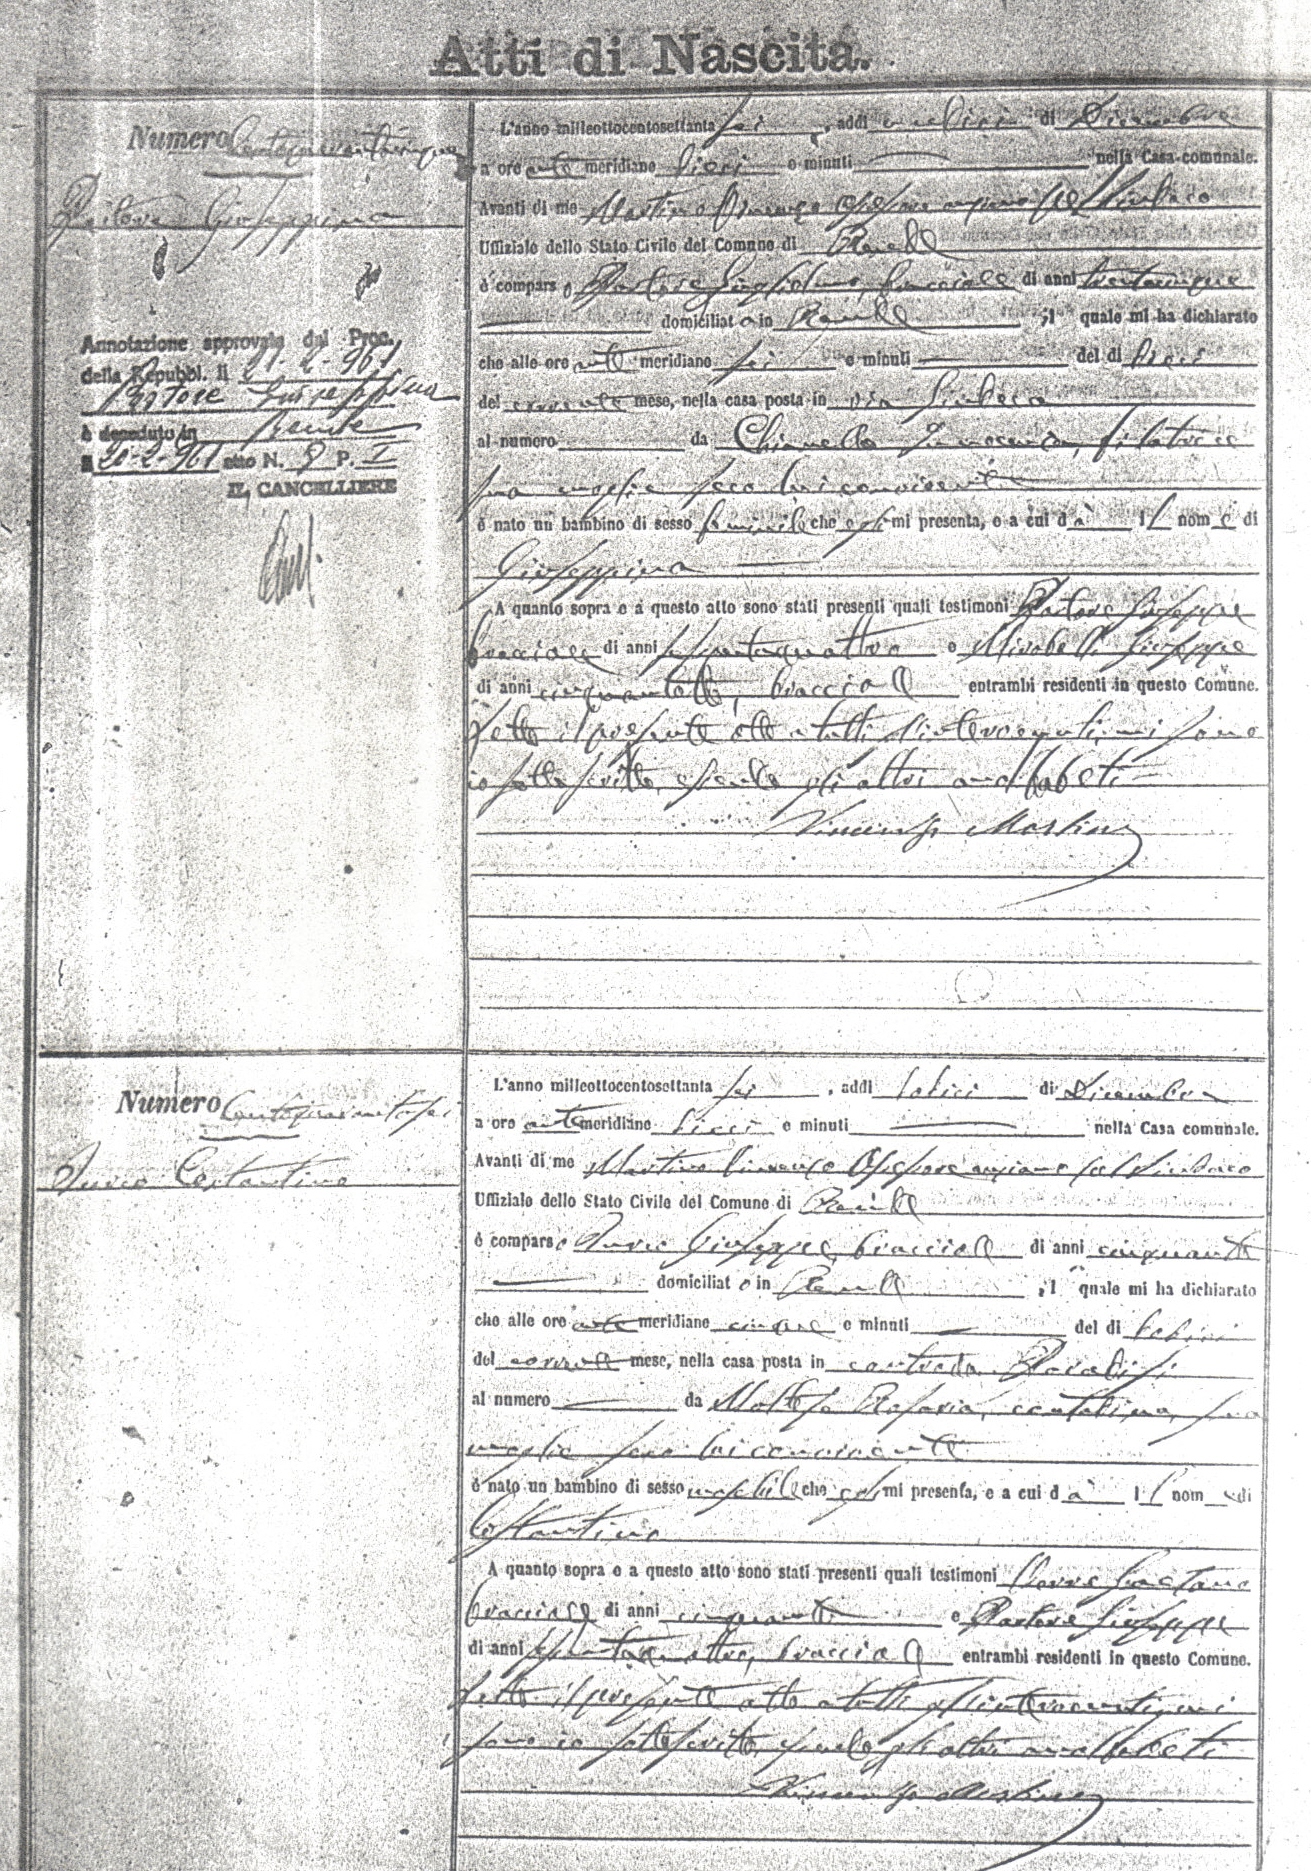 Atti di Nascita.
Numero Centoquarantacinque
Pastore Giuseppina
Annotazione approvata dal Proc.
della Repubbl. li 21-2-961
Pastore Giuseppina
è deceduto in
il 20-2-961 atto N. 9 P. I
IL CANCELLIERE
L'anno milleottocentosettanta sei, addi undici di Dicembre
a ore ante meridiane dieci e minuti nella Casa comunale.
Avanti di me Martino Vincenzo Assessore anziano pel Sindaco
Uffiziale dello Stato Civile del Comune di
è comparso Pastore Guglielmo, bracciale di anni trentacinque
domiciliato in , il quale mi ha dichiarato
che alle ore ante meridiane sei e minuti del di dieci
del corrente mese, nella casa posta in via
al numero da Chiannello Innocenza, filatrice
sua moglie seco lui convivente
è nato un bambino di sesso femminile che egli mi presenta, e a cui dà il nome di
Giuseppina
A quanto sopra e a questo atto sono stati presenti quali testimoni Pastore Giuseppe
bracciale di anni sessantaquattro e Mirabelli Giuseppe
di anni cinquantotto, bracciale entrambi residenti in questo Comune.
Letto il presente atto a tutti gl'intervenuti, mi sono
io sottoscritto, essendo gli altri analfabeti
Vincenzo Martino
Numero Centoquarantasei
Costantino
L'anno milleottocentosettanta sei, addi dodici di Dicembre
a ore ante meridiane dieci e minuti nella Casa comunale.
Avanti di me Martino Vincenzo Assessore anziano pel Sindaco
Uffiziale dello Stato Civile del Comune di
è comparso Giuseppe, bracciale di anni cinquanta
domiciliato in , il quale mi ha dichiarato
che alle ore ante meridiane cinque e minuti del di dodici
del corrente mese, nella casa posta in contrada
al numero da Maltese Rosaria, contadina, sua
moglie seco lui convivente
è nato un bambino di sesso maschile che egli mi presenta, e a cui dà il nome di
Costantino
A quanto sopra e a questo atto sono stati presenti quali testimoni Gaetano
bracciale di anni cinquanta e Pastore Giuseppe
di anni sessantaquattro, bracciale entrambi residenti in questo Comune.
Letto il presente atto a tutti gl'intervenuti, mi
sono io sottoscritto, essendo gli altri analfabeti
Vincenzo Martino